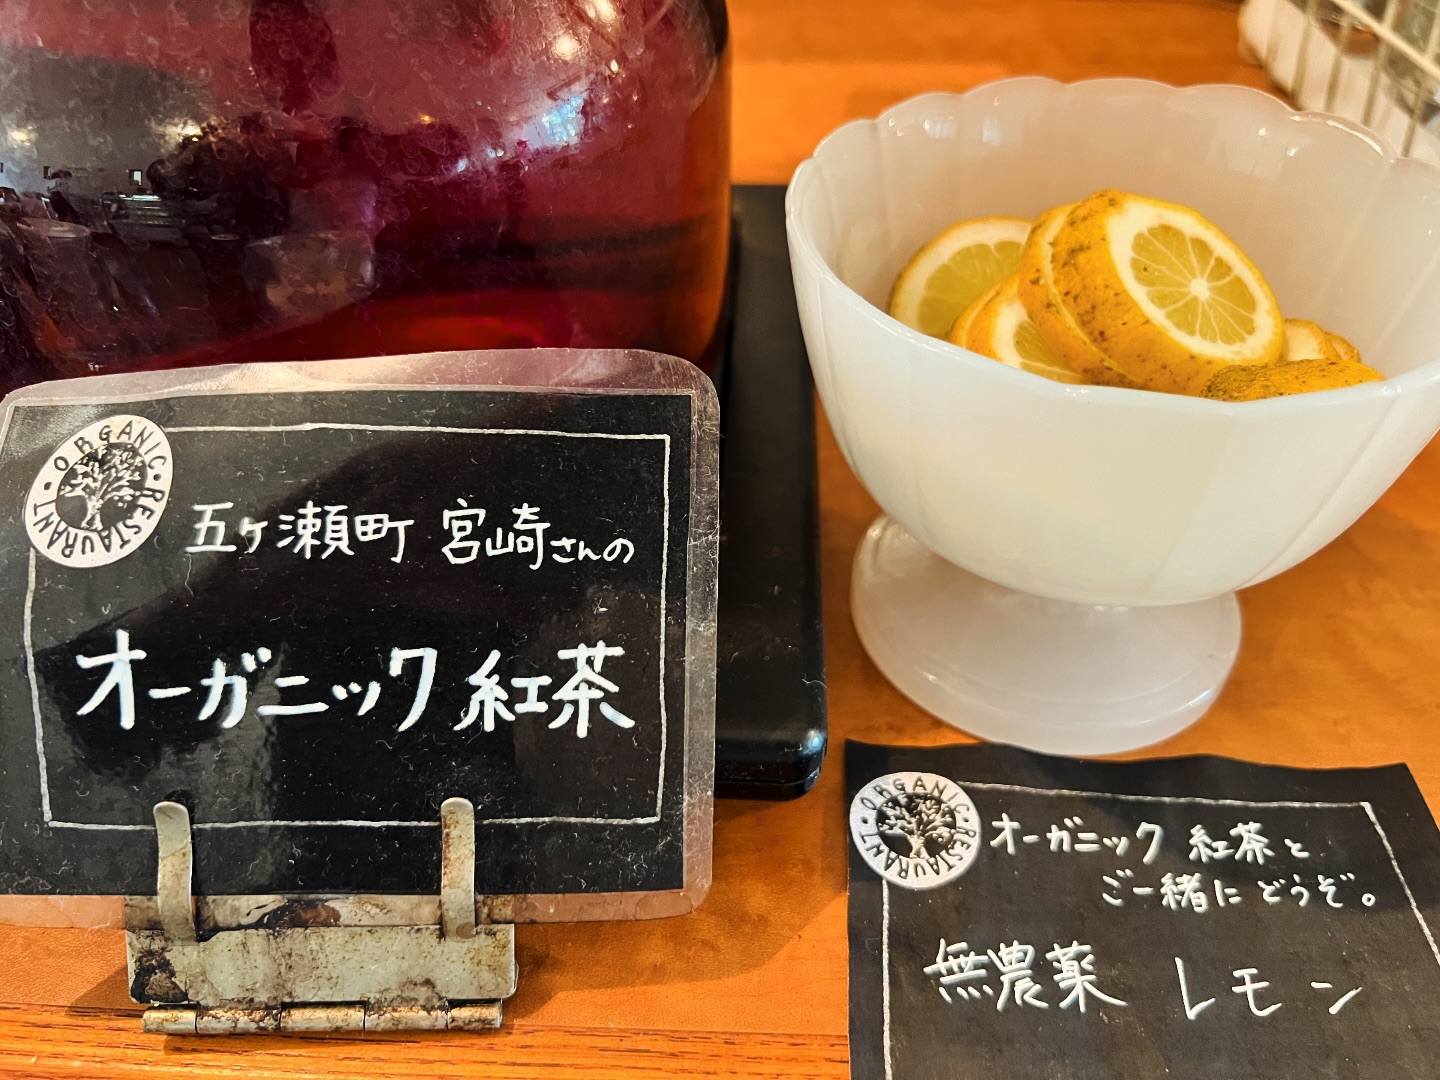 ORGANIC RESTAURANT
五ヶ瀬町 宮崎さんの
オーガニック紅茶
ORGANIC RESTAURANT
オーガニック 紅茶と
ご一緒に どうぞ。
無農薬 レモン